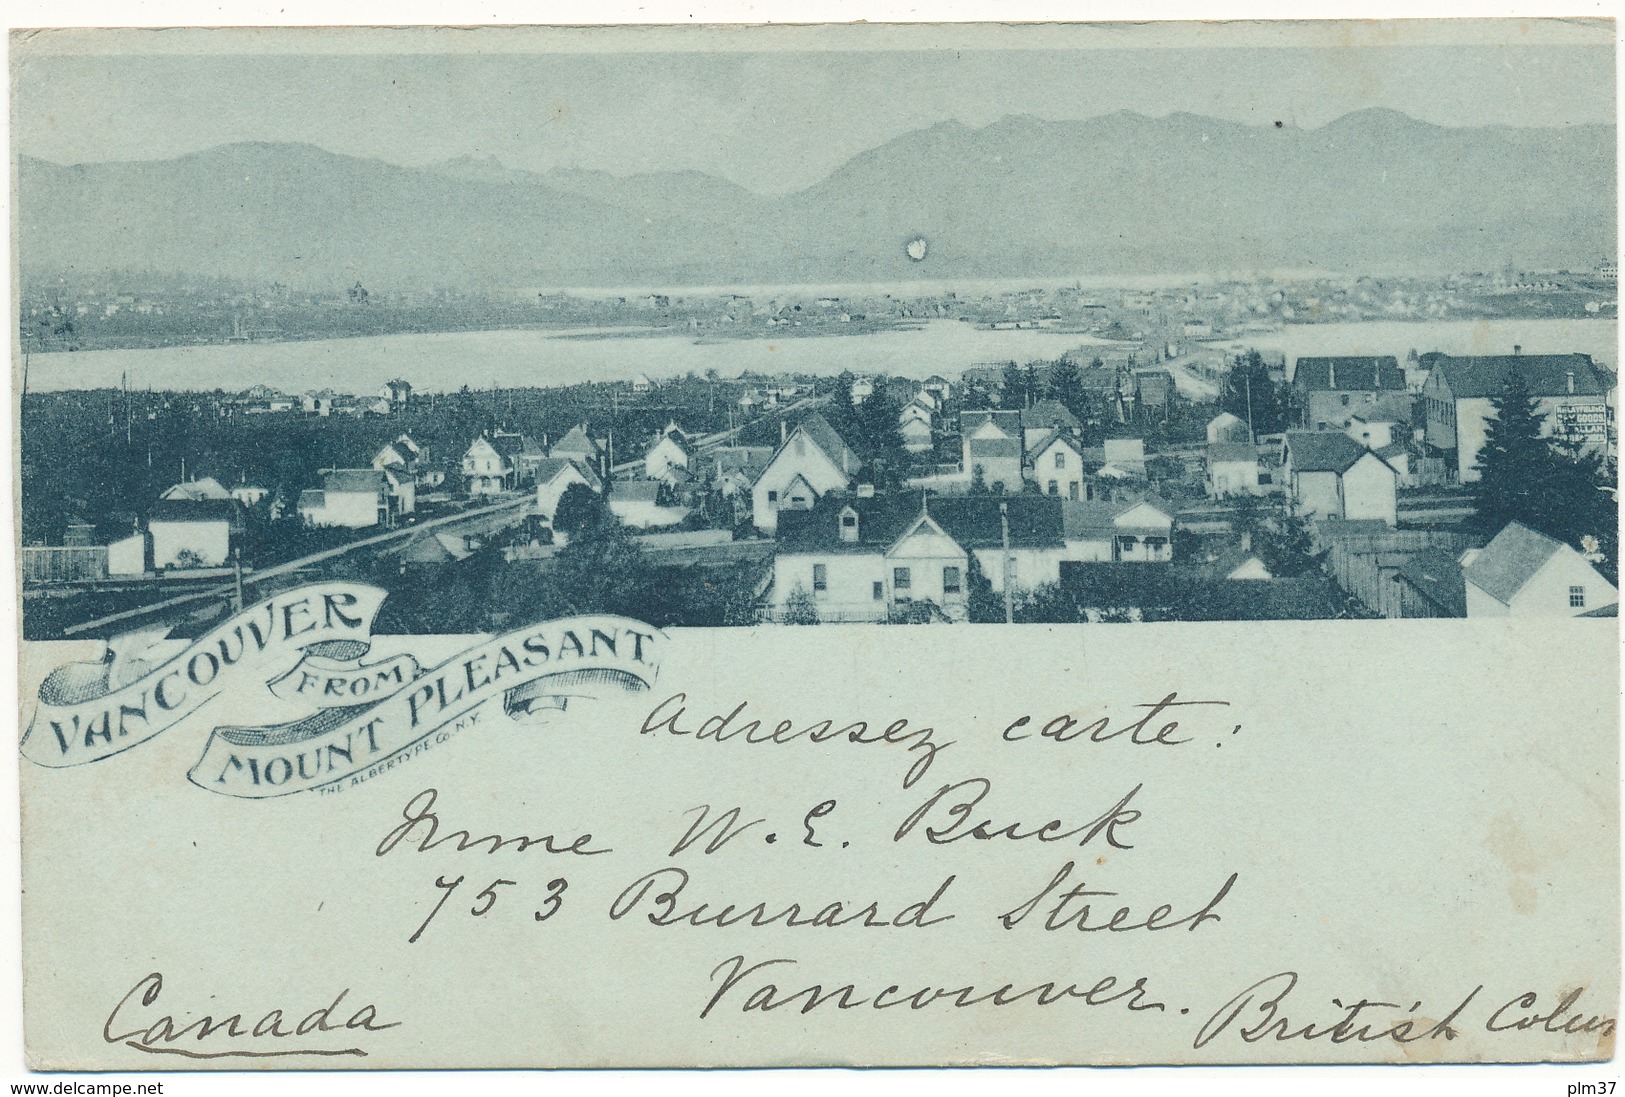 VANCOUVER
FROM
MOUNT PLEASANT.
THE ALBERTYPE Co. N.Y.
GOODS
ALLAN
Adressez carte:
Mme W. E. Buck
753 Burrard Street
Vancouver. British Colum
Canada
www.delcampe.net
plm37